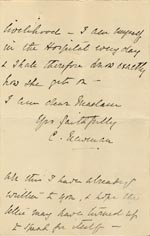 livelihood — I am myself
in the Hospital every day
& shall therefore know exactly
how she gets on —
I am dear Madam
Yrs faithfully
C. Newman
All this I have already
written to you, & the
letter may have turned up
to speak for itself —